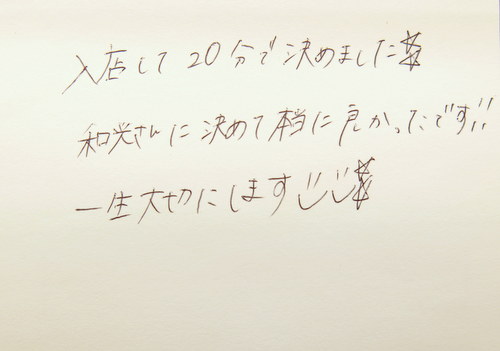 入店して20分で決めました☆
和光さんに決めて本当に良かったです!!
一生大切にします